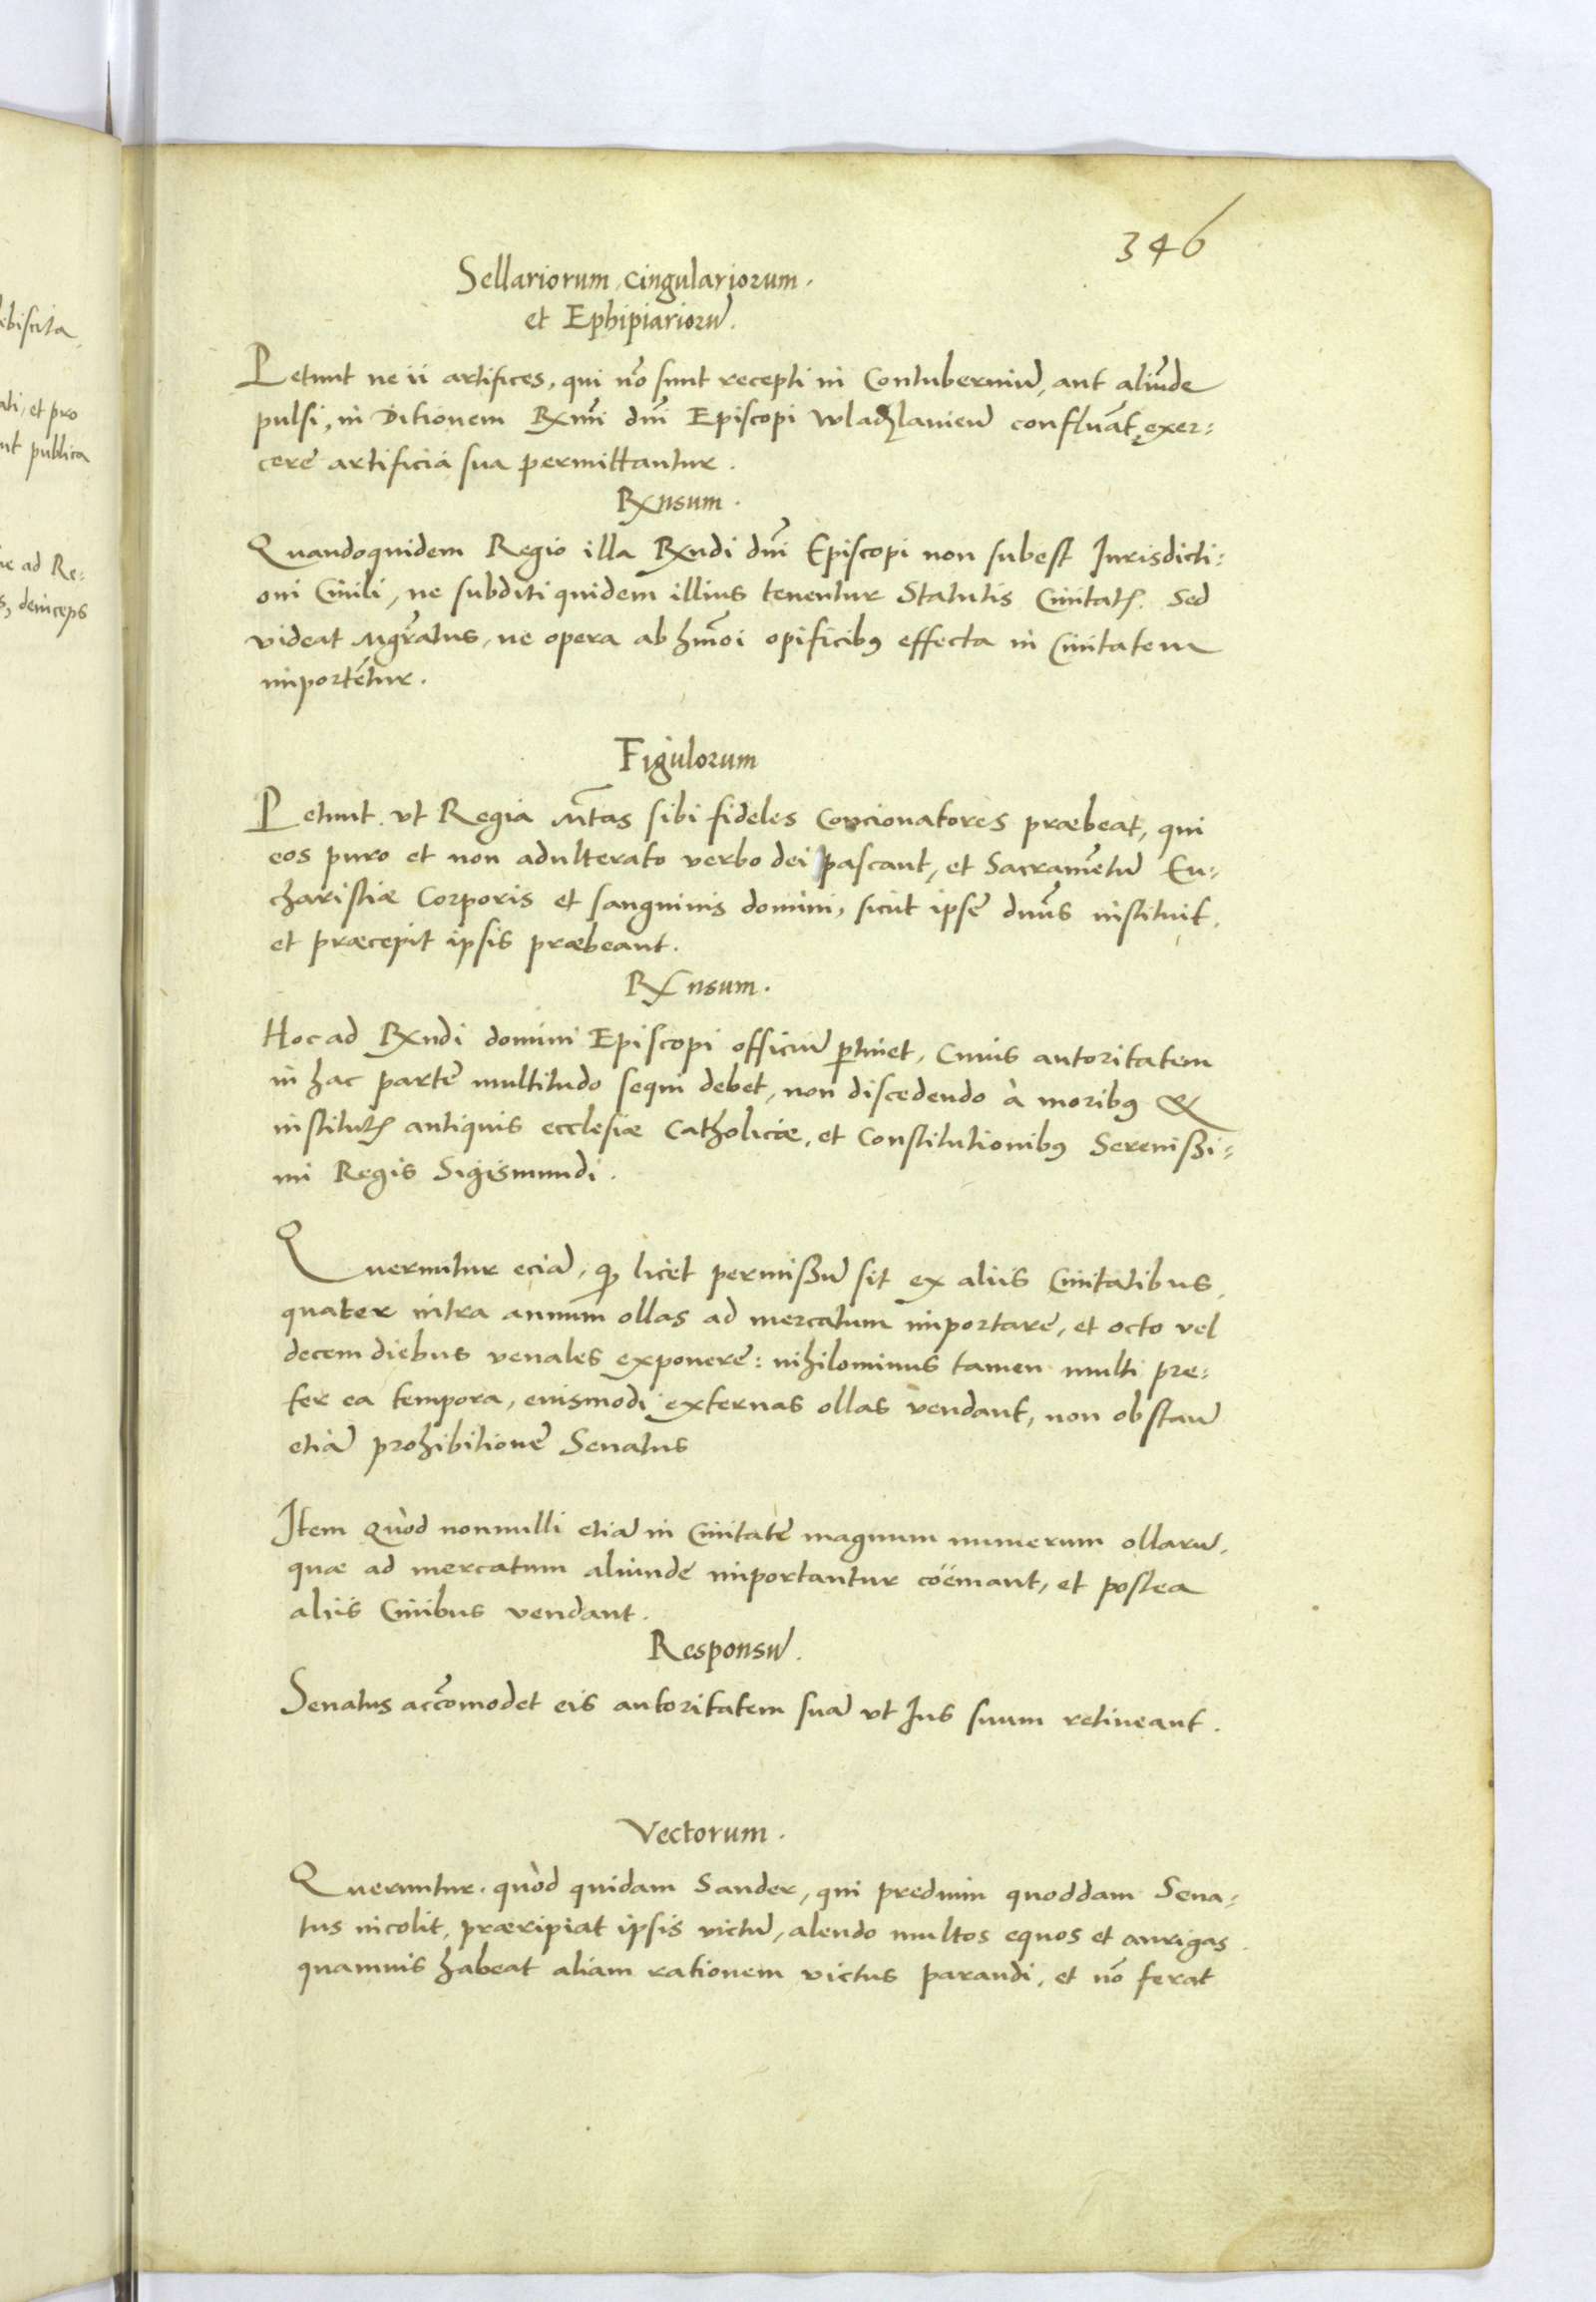 346
Sellariorum, cingulariorum.
et Ephipiariorũ.
Petunt ne ii artifices, qui nõ sunt recepti in Contuberniũ, aut aliũde
pulsi, in Ditionem Rxmi dni Episcopi Wladzlavieñ confluãt, exer:
cere artificia sua permittantur.
Rxnsum.
Quandoquidem Regio illa Rxndi dni Episcopi non subest Jurisdicti:
oni Civili, ne subditi quidem illius tenentur Statutis Civitatꝭ. Sed
videat Mgratus, ne opera ab hmõi opificibꝰ effecta in Civitatem
importẽtur.
Figulorum
Petunt ut Regia Mtas sibi fideles Concionatores præbeat, qui
eos puro et non adulterato verbo dei pascant, et Sacramẽtũ Eu:
charistiæ Corporis et sanguinis domini, sicut ipse dnũs instituit,
et præcepit ipsis præbeant.
Rxnsum.
Hoc ad Rxndi domini Episcopi officiũ ꝑtinet, Cuius autoritatem
in hac parte multitudo sequi debet, non discedendo à moribꝰ &
institutꝭ antiquis ecclesiæ Catholicæ, et Constitutionibꝰ Serenißi:
mi Regis Sigismundi.
Queruntur eciã, ꝙ licet permißũ sit ex aliis Civitatibus,
quater intra annum ollas ad mercatum importare, et octo vel
decem diebus venales exponere: nihilominus tamen multi pre:
ter ea tempora, eiusmodi externas ollas vendant, non obstañ
etiã prohibitione Senatus
Item quòd nonnulli etiã in Civitate magnum numerum ollarũ,
quae ad mercatum aliunde importantur coëmant, et postea
aliis Civibus vendant.
Responsũ.
Senatus accõmodet eis autoritatem suã ut Jus suum retineant.
Vectorum.
Queruntur, quòd quidam Sander, qui predium quoddam Sena:
tus incolit, præripiat ipsis victũ, alendo multos equos et aurigas
quamvis habeat aliam rationem victus parandi, et nõ ferat
ebiscita
ati, et pro
nt publica
ie ad Re:
s, deinceps